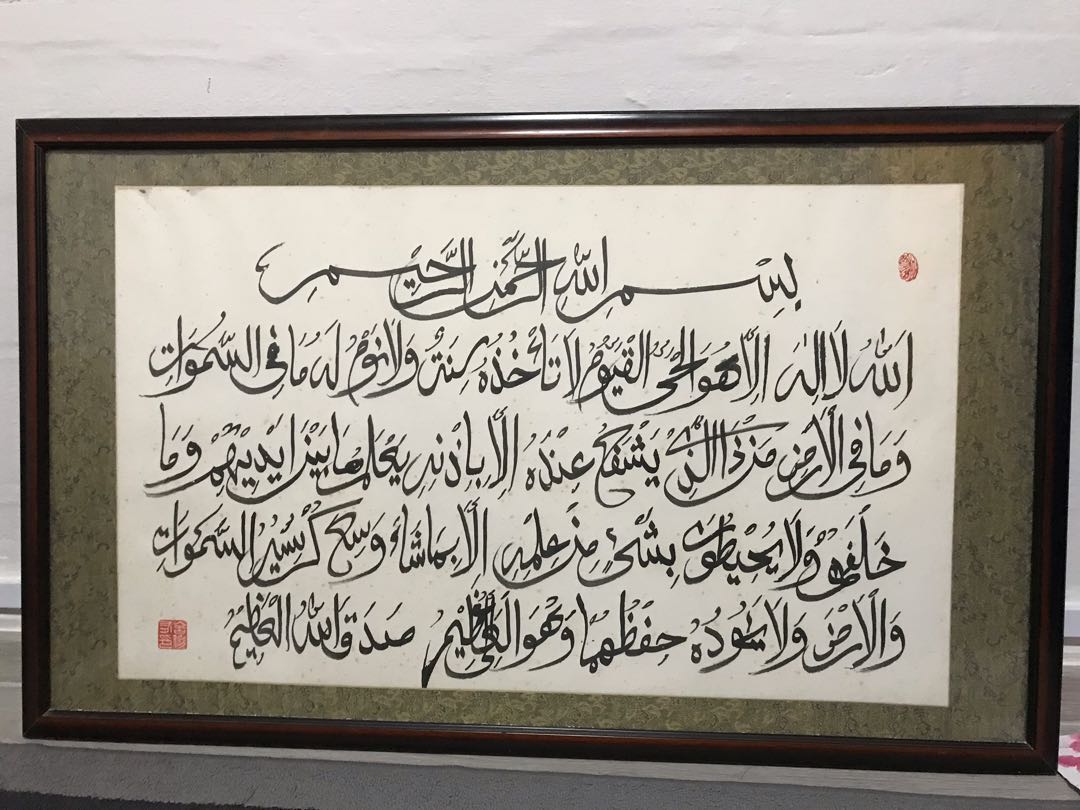 بِسْمِ اللّٰهِ الرَّحْمٰنِ الرَّحِيمِ
اَللّٰهُ لَا اِلٰهَ اِلَّا هُوَ الْحَىُّ الْقَيُّومُ لَا تَأْخُذُهُ سِنَةٌ وَلَا نَوْمٌ لَهُ مَا فِى السَّمٰوَاتِ
وَمَا فِى الْاَرْضِ مَنْ ذَا الَّذِى يَشْفَعُ عِنْدَهُ اِلَّا بِاِذْنِهِ يَعْلَمُ مَا بَيْنَ اَيْدِيهِمْ وَمَا
خَلْفَهُمْ وَلَا يُحِيطُونَ بِشَىْءٍ مِنْ عِلْمِهِ اِلَّا بِمَا شَاءَ وَسِعَ كُرْسِيُّهُ السَّمٰوَاتِ
وَالْاَرْضَ وَلَا يَئُودُهُ حِفْظُهُمَا وَهُوَ الْعَلِىُّ الْعَظِيمُ صَدَقَ اللّٰهُ الْعَظِيمُ